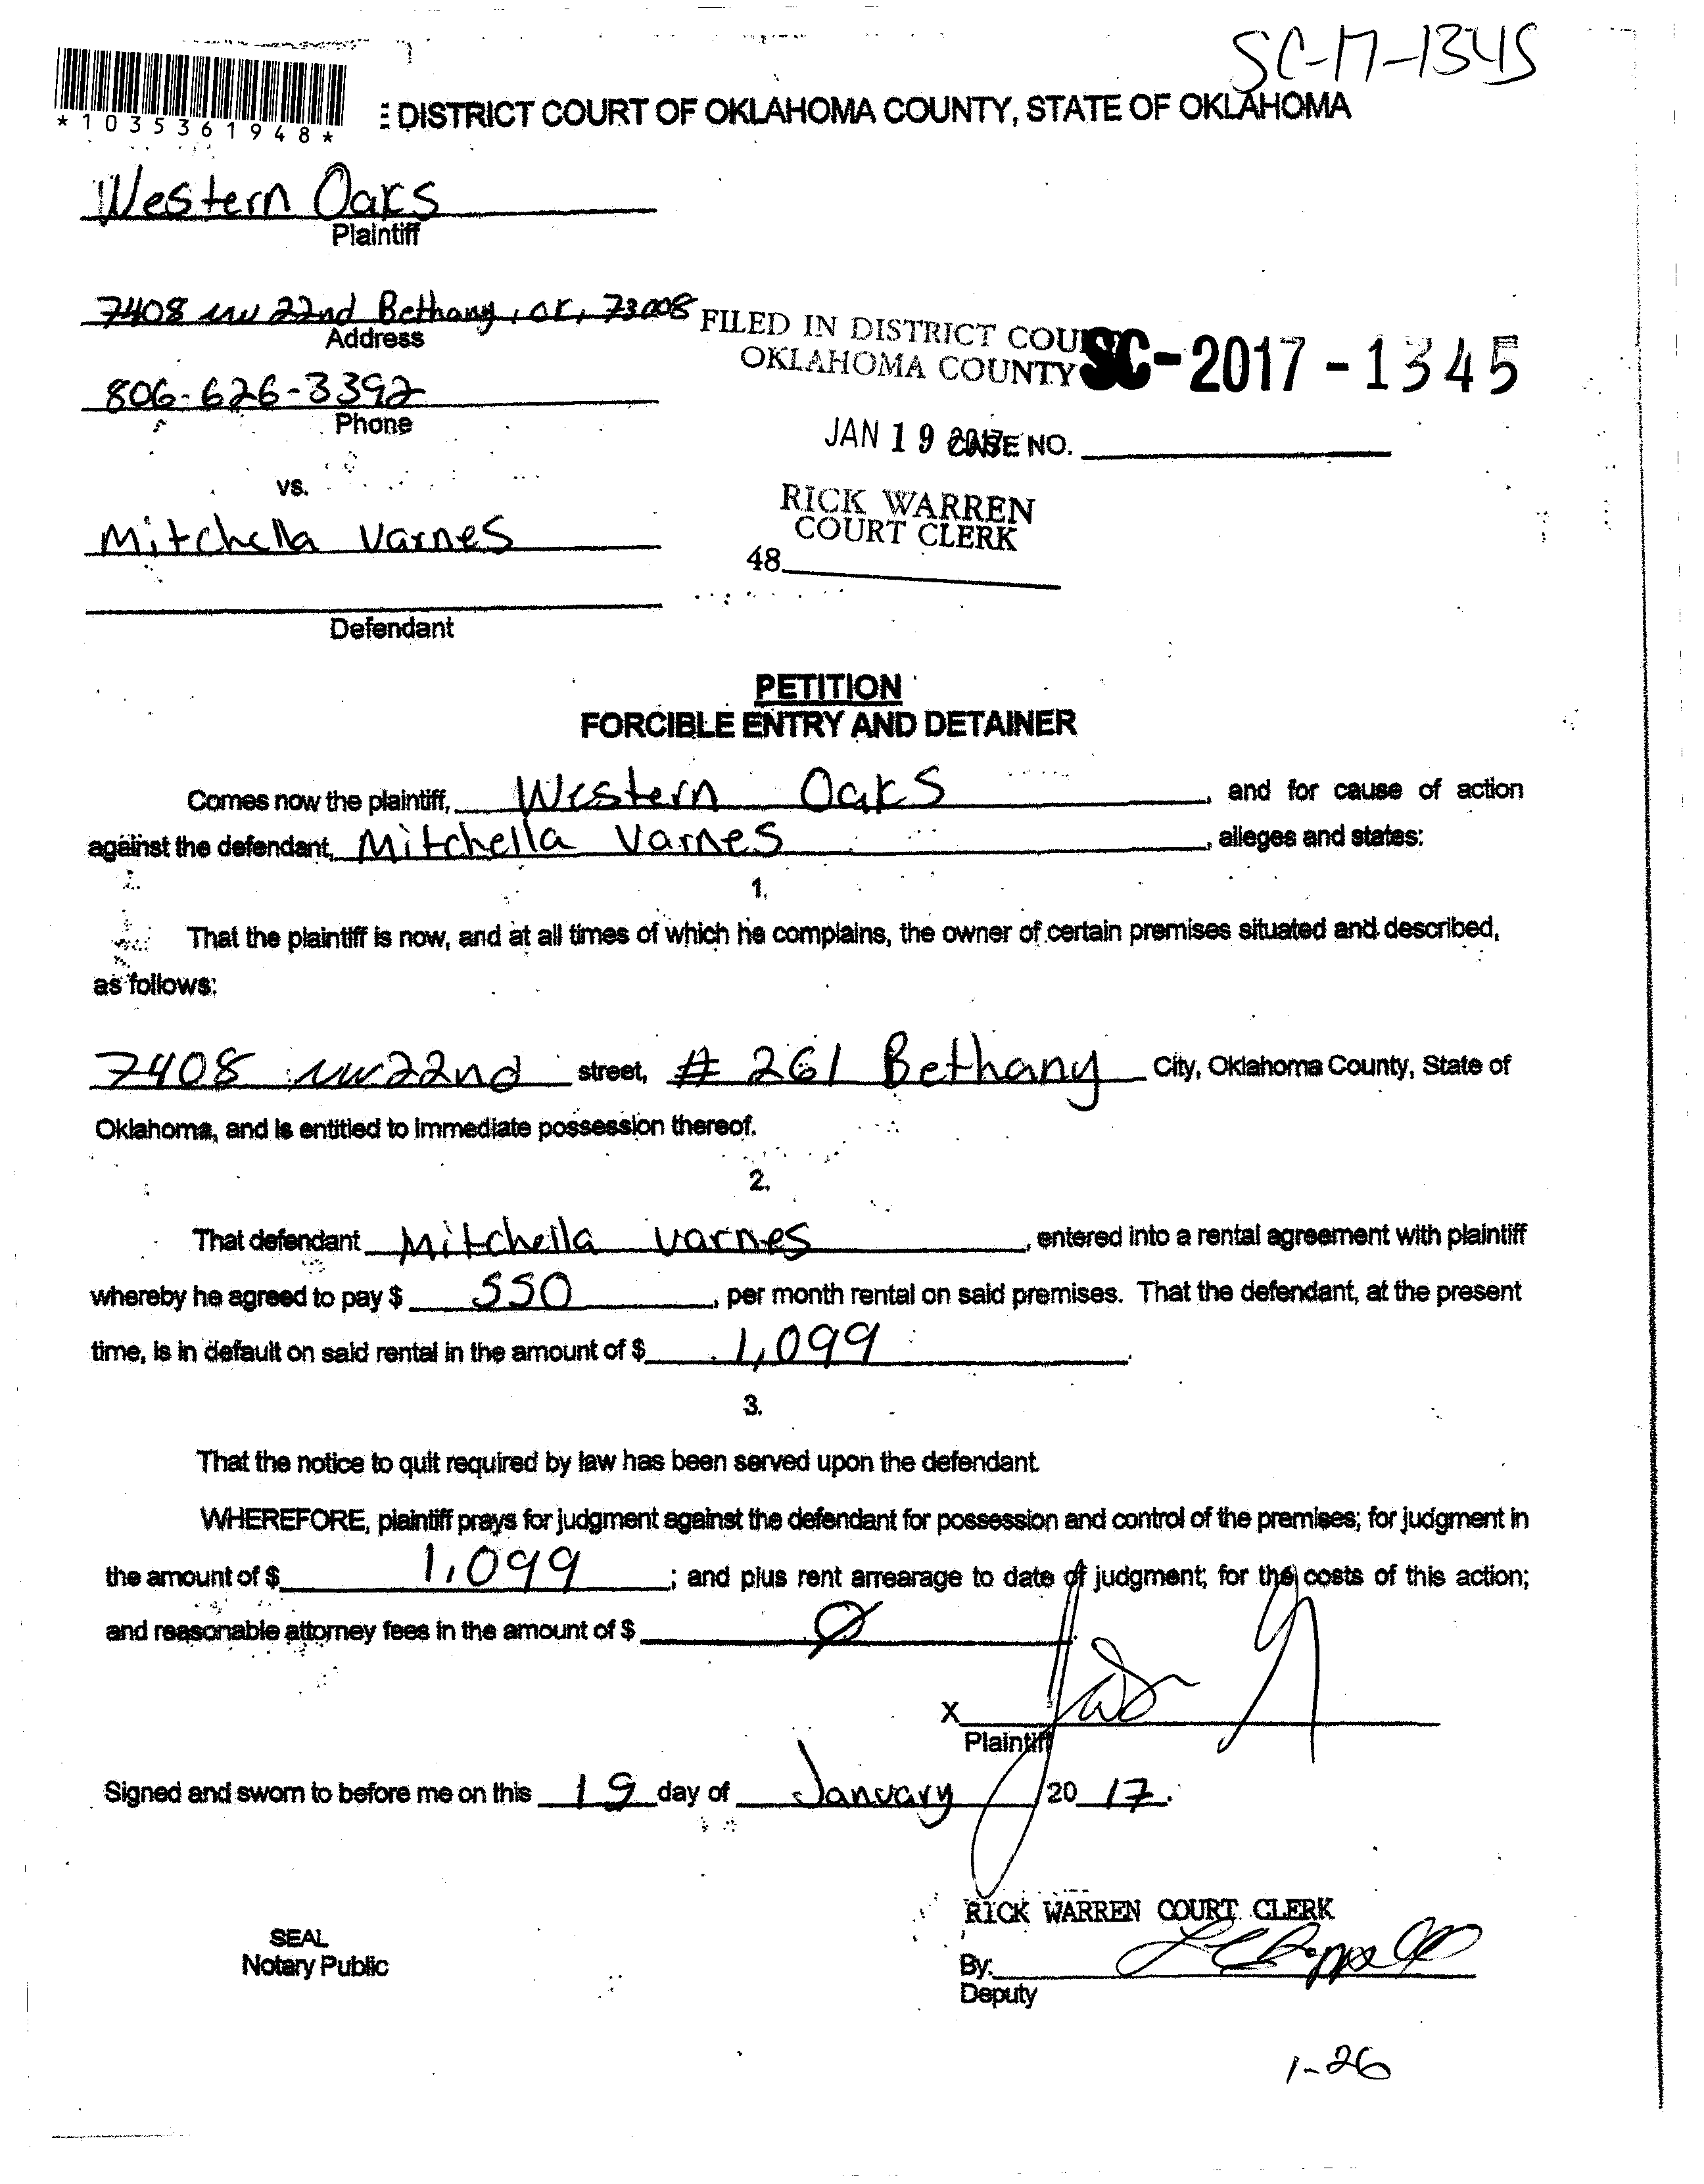 SC-17-1345
*1035361948*
E DISTRICT COURT OF OKLAHOMA COUNTY, STATE OF OKLAHOMA
Western Oaks
Plaintiff
7408 nw 22nd Bethany, OK, 73008
Address
FILED IN DISTRICT COURT
OKLAHOMA COUNTY
SC-2017-1345
806-626-3392
Phone
JAN 19 2017
CASE NO.
vs.
RICK WARREN
COURT CLERK
Mitchella Varnes
48
Defendant
PETITION
FORCIBLE ENTRY AND DETAINER
Comes now the plaintiff, Western Oaks, and for cause of action
against the defendant, Mitchella Varnes, alleges and states:
1.
That the plaintiff is now, and at all times of which he complains, the owner of certain premises situated and described,
as follows:
7408 nw 22nd street, # 261 Bethany City, Oklahoma County, State of
Oklahoma, and is entitled to immediate possession thereof.
2.
That defendant Mitchella Varnes, entered into a rental agreement with plaintiff
whereby he agreed to pay $ 550, per month rental on said premises. That the defendant, at the present
time, is in default on said rental in the amount of $ 1,099.
3.
That the notice to quit required by law has been served upon the defendant.
WHEREFORE, plaintiff prays for judgment against the defendant for possession and control of the premises; for judgment in
the amount of $ 1,099; and plus rent arrearage to date of judgment; for the costs of this action;
and reasonable attorney fees in the amount of $ Ø.
X
Plaintiff
Signed and sworn to before me on this 19 day of January 20 17.
RICK WARREN COURT CLERK
SEAL
Notary Public
By:
Deputy
1-26